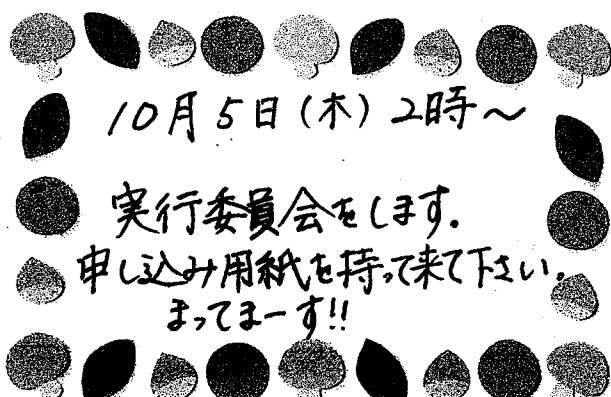 10月5日(木) 2時〜
実行委員会をします.
申し込み用紙を持って来て下さい。
まってまーす!!